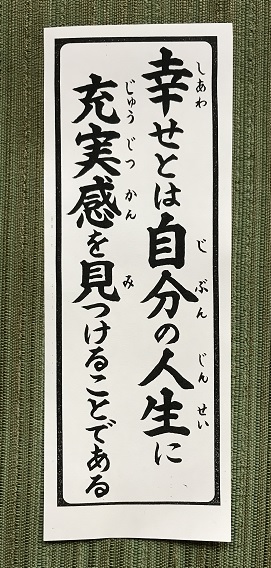 幸せとは自分の人生に
しあわ じぶん じんせい
充実感を見つけることである
じゅうじつかん み